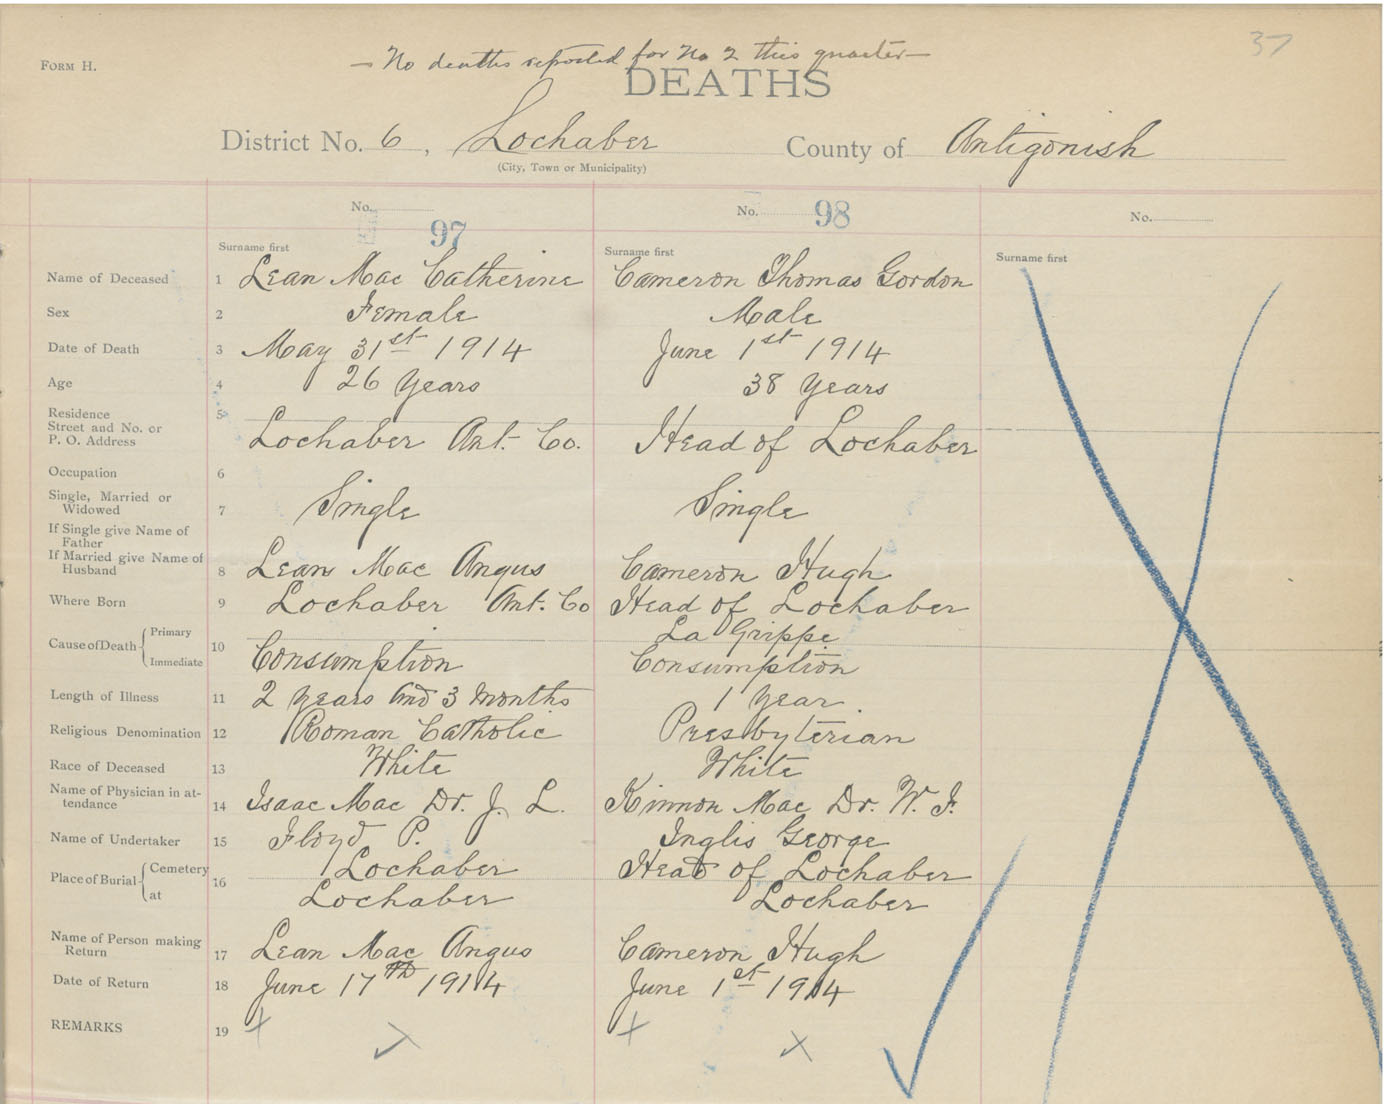 37
FORM H.
— No deaths reported for No 2 this quarter —
DEATHS
District No. 6, Lochaber County of Antigonish
(City, Town or Municipality)
No. 97 No. 98 No.
Surname first Surname first Surname first
Name of Deceased 1 Lean Mac Catherine Cameron Thomas Gordon
Sex 2 Female Male
Date of Death 3 May 31st 1914 June 1st 1914
Age 4 26 Years 38 Years
Residence Street and No. or P. O. Address 5 Lochaber Ant. Co. Head of Lochaber
Occupation 6
Single, Married or Widowed 7 Single Single
If Single give Name of Father
If Married give Name of Husband 8 Lean Mac Angus Cameron Hugh
Where Born 9 Lochaber Ant. Co Head of Lochaber
Cause of Death Primary 10 La Grippe
Immediate Consumption Consumption
Length of Illness 11 2 Years And 3 Months 1 Year.
Religious Denomination 12 Roman Catholic Presbyterian
Race of Deceased 13 White White
Name of Physician in attendance 14 Isaac Mac Dr. J. L. Kinnon Mac Dr. W. F.
Name of Undertaker 15 Floyd P. Inglis George
Place of Burial Cemetery 16 Lochaber Head of Lochaber
at Lochaber Lochaber
Name of Person making Return 17 Lean Mac Angus Cameron Hugh
Date of Return 18 June 17th 1914 June 1st 1914
REMARKS 19